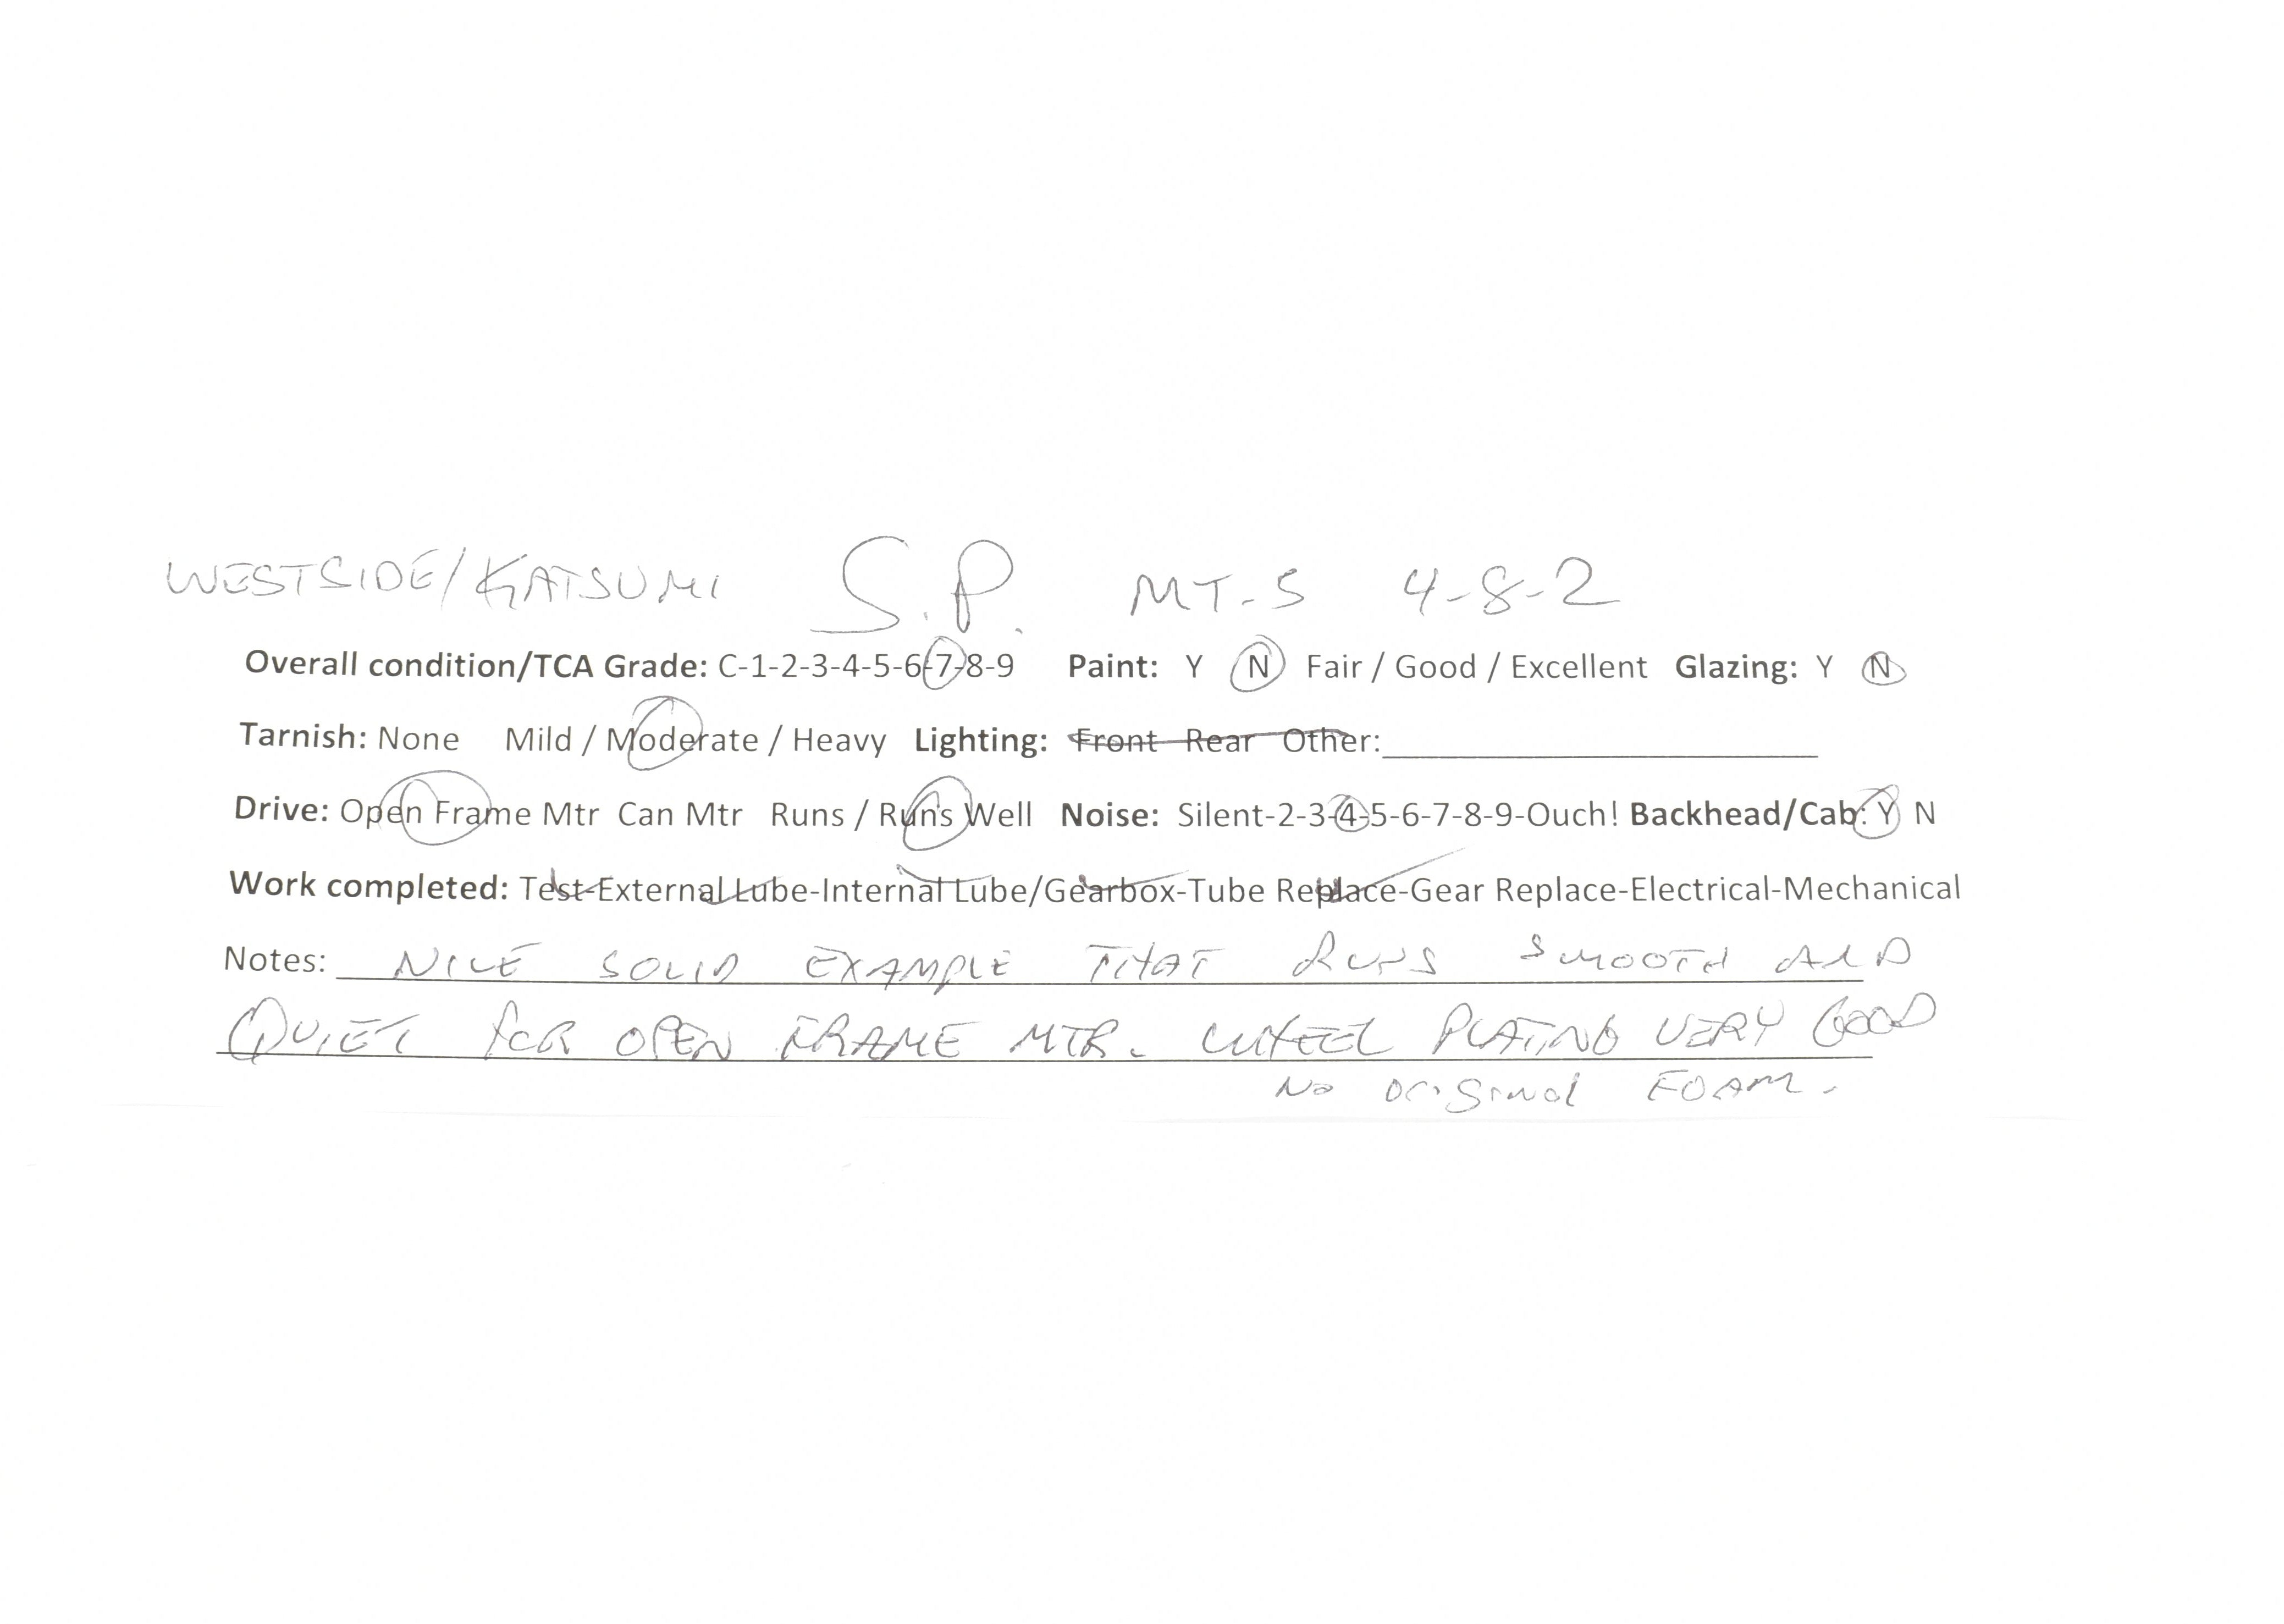 WESTSIDE/KATSUMI S.P. MT-5 4-8-2
Overall condition/TCA Grade: C-1-2-3-4-5-6-7-8-9 Paint: Y N Fair / Good / Excellent Glazing: Y N
Tarnish: None Mild / Moderate / Heavy Lighting: Front Rear Other:
Drive: Open Frame Mtr Can Mtr Runs / Runs Well Noise: Silent-2-3-4-5-6-7-8-9-Ouch! Backhead/Cab: Y N
Work completed: Test-External Lube-Internal Lube/Gearbox-Tube Replace-Gear Replace-Electrical-Mechanical
Notes: NICE SOLID EXAMPLE THAT RUNS SMOOTH AND
QUIET FOR OPEN FRAME MTR. WHEEL PLATING VERY GOOD
No original FOAM.